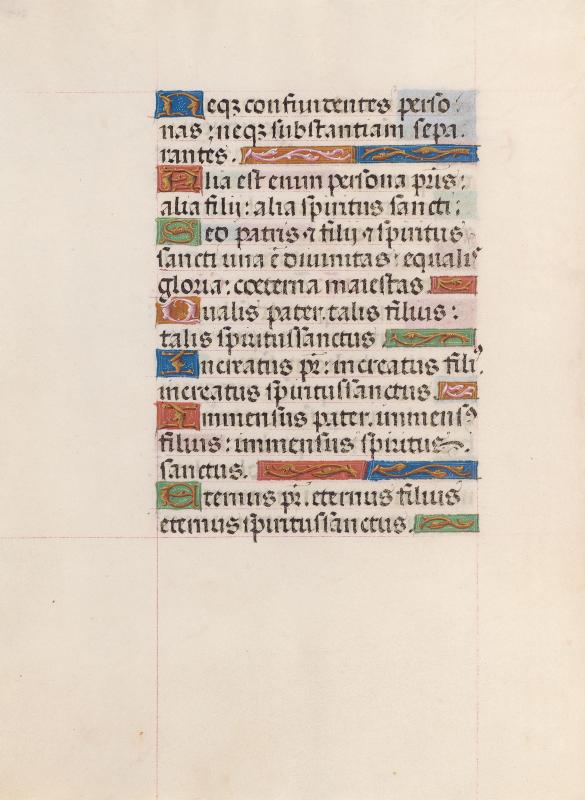 Neqꝫ confundentes perso:
nas: neqꝫ substantiam sepa.
rantes.
Alia est enim persona pr̄is:
alia filij: alia spiritus sancti:
Sed patris ⁊ filij ⁊ spiritus
sancti una ē diuinitas: equalis
gloria: coeterna maiestas.
Qualis pater. talis filius:
talis spiritussanctus
Increatus pr̄: increatus filiꝰ.
increatus spiritussanctus.
Immensus pater. immensꝰ
filius: immensus spiritus.
sanctus.
Eternus pr̄. eternus filius
eternus spiritussanctus.